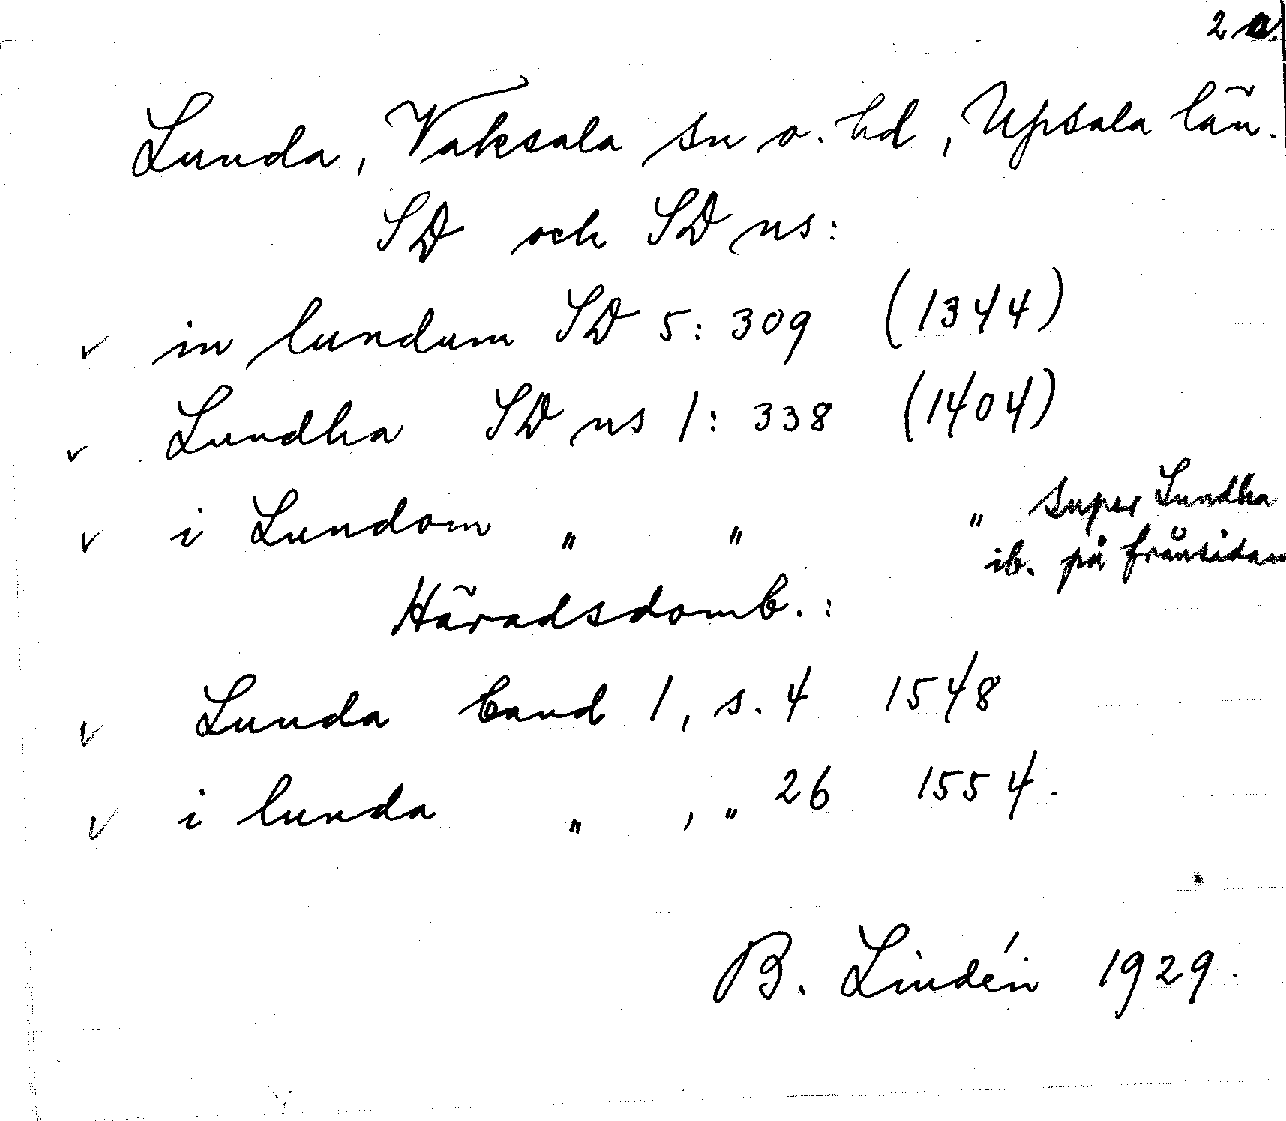 2 a.
Lunda, Vaksala sn o. hd, Upsala län.
SD och SD ns:
✓ in lundum SD 5: 309 (1344)
✓ Lundha SD ns 1: 338 (1404)
✓ i Lundom „ „ „ super Lundha
ib. på frånsidan
Häradsdomb.:
✓ Lunda band 1, s. 4 1548
✓ i lunda „ , „ 26 1554.
B. Lindén 1929.